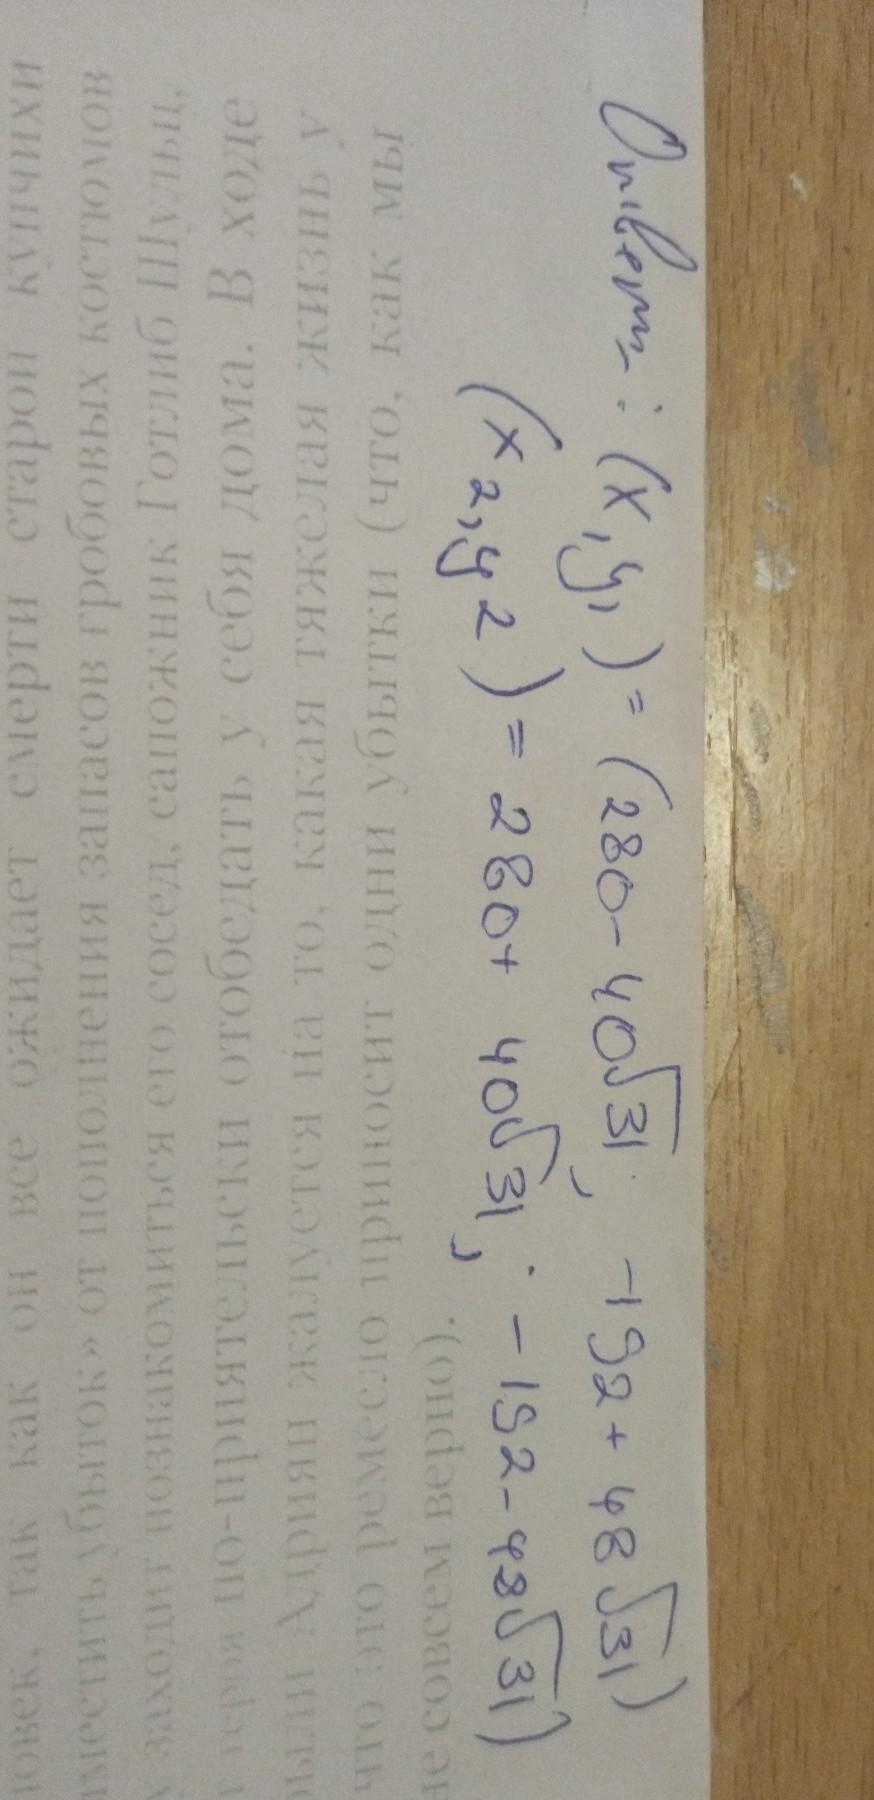 Ответ: (x₁y₁) = (280 - 40√31; -192 + 48√31)
(x2,y2) = 280 + 40√31; -192 - 48√31)
ловек, так как он все ожидает смерти старой купчихи
местить убыток» от пополнения запасов гробовых костюмов
заходит познакомиться его сосед, сапожник Готлиб Шульц,
героя по-приятельски отобедать у себя дома. В ходе
Адриян жалуется на то, какая тяжелая жизнь у
что это ремесло приносит одни убытки (что, как мы
не совсем верно).